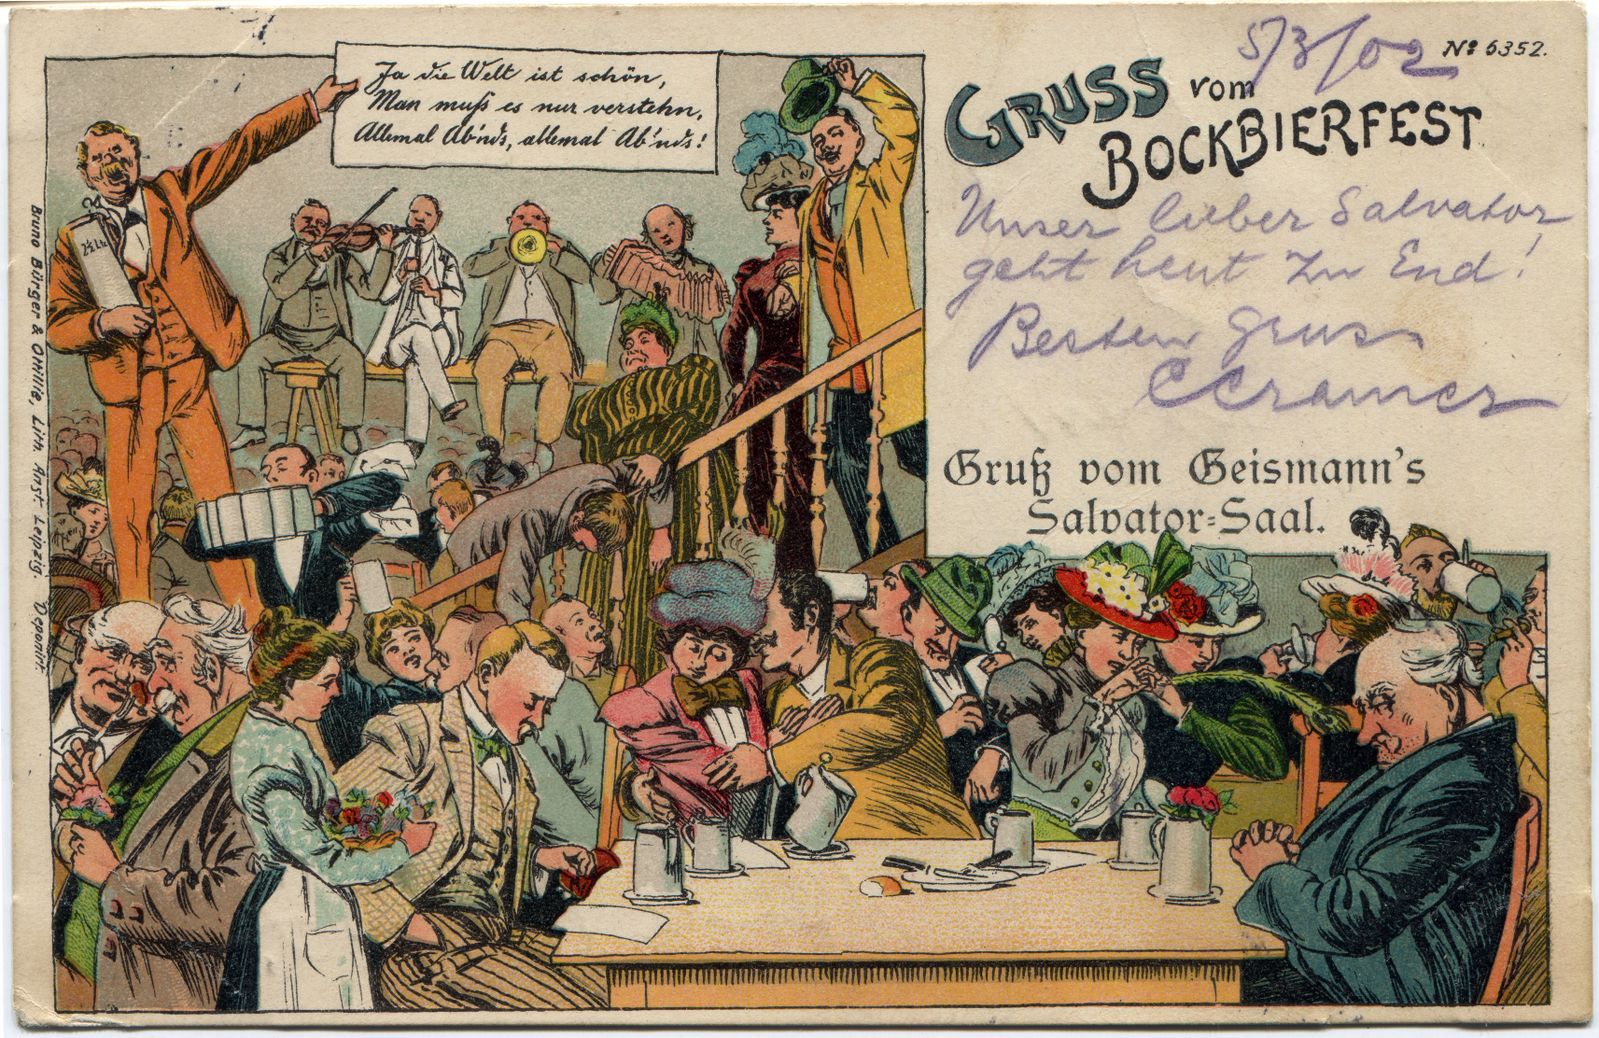 Ja die Welt ist schön,
Man muß es nur verstehn,
Allemal Ab'nds, allemal Ab'nds!
2½ Ltr.
5/3/02
No 6352.
GRUSS vom
BOCKBIERFEST
Unser lieber Salvator
geht heut zu End!
Besten Gruss
CCramer
Gruß vom Geismann's
Salvator-Saal.
Bruno Bürger & Ottillie, Lith. Anst. Leipzig. Deponirt.